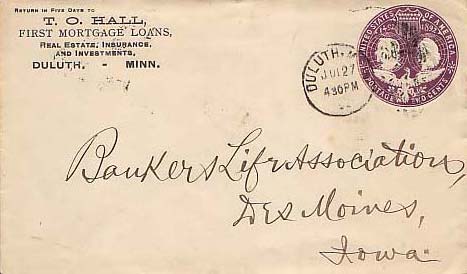 RETURN IN FIVE DAYS TO
T. O. HALL,
FIRST MORTGAGE LOANS,
REAL ESTATE, INSURANCE,
AND INVESTMENTS,
DULUTH, - MINN.
DULUTH,
JUL 27
430PM
UNITED STATES OF AMERICA
POSTAGE TWO CENTS
Bankers Life Association,
Des Moines,
Iowa